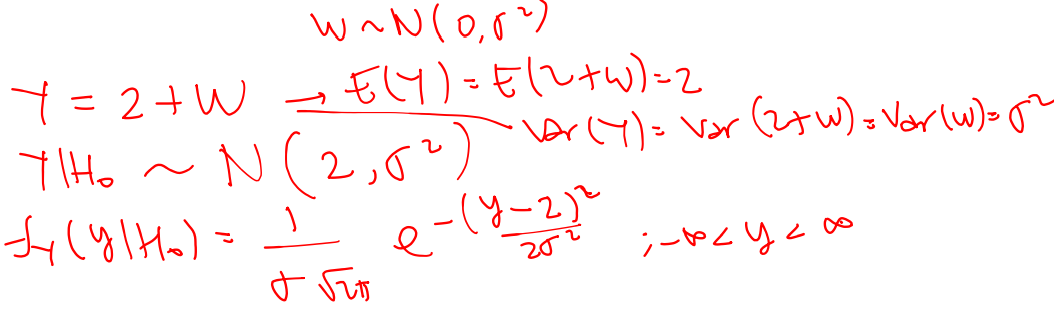 W ~ N(0, σ²)
Y = 2 + W → E(Y) = E(2+W) = 2
Var(Y) = Var(2+W) = Var(W) = σ²
Y|H₀ ~ N(2, σ²)
f_Y(y|H₀) = 1/(σ√2π) e^(-(y-2)²/2σ²) ; -∞ < y < ∞